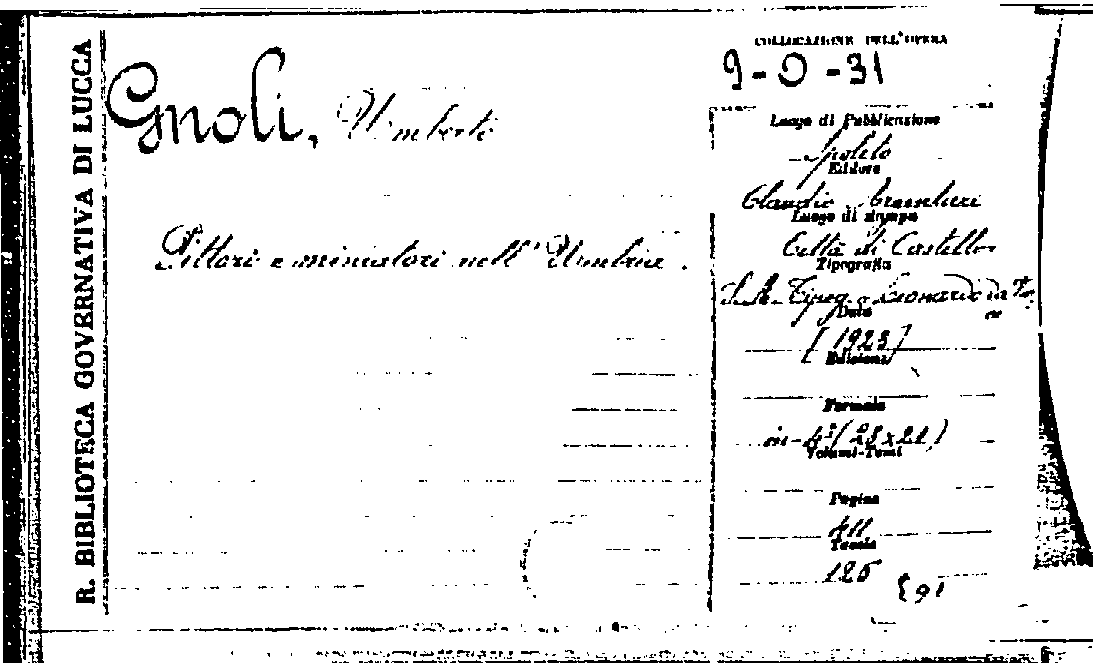 R. BIBLIOTECA GOVERNATIVA DI LUCCA
COLLOCAZIONE DELL'OPERA
9-O-31
Gnoli, Umberto
Pittori e miniatori nell'Umbria.
Luogo di Pubblicazione
Spoleto
Editore
Claudio Argentieri
Luogo di stampa
Città di Castello
Tipografia
S. A. Tipog. Leonardo da
Data
[1923]
Edizione
Formato
in-4° (28x21)
Volumi-Tomi
Pagine
411
Tavole
125